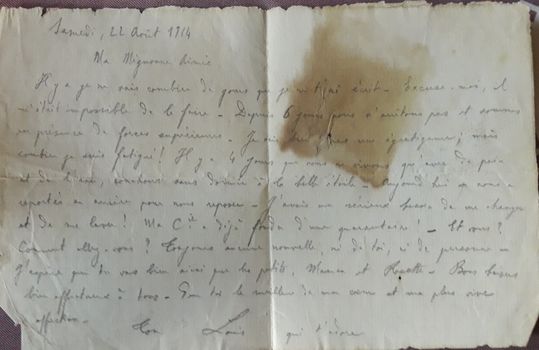 Samedi, 22 Août 1914
Ma Mignonne aimée
Il y a je ne sais combien de jours que je ne t'ai écrit - Excuse-moi, il
m'était impossible de le faire - Depuis 6 jours nous n'arrêtons pas et sommes
en présence de forces supérieures - Je suis mais
combien je suis fatigué ! Il y a 4 jours que nous ne vivons qu'avec du pain
et de l'eau, couchons sans dormir à la belle étoile - Aujourd'hui on nous a
reportés en arrière pour nous reposer - J'avais un sérieux besoin de me changer
et de me laver ! Ma Cie a déjà fondu d'une quarantaine ! - Et vous ?
Comment allez-vous ? Toujours aucune nouvelle, ni de toi, ni de personne
J'espère que tu vas bien ainsi que les petits, Maman et - Bons baisers
bien affectueux à tous - Pour toi le meilleur de mon cœur et ma plus vive
affection -
Ton Louis qui t'adore